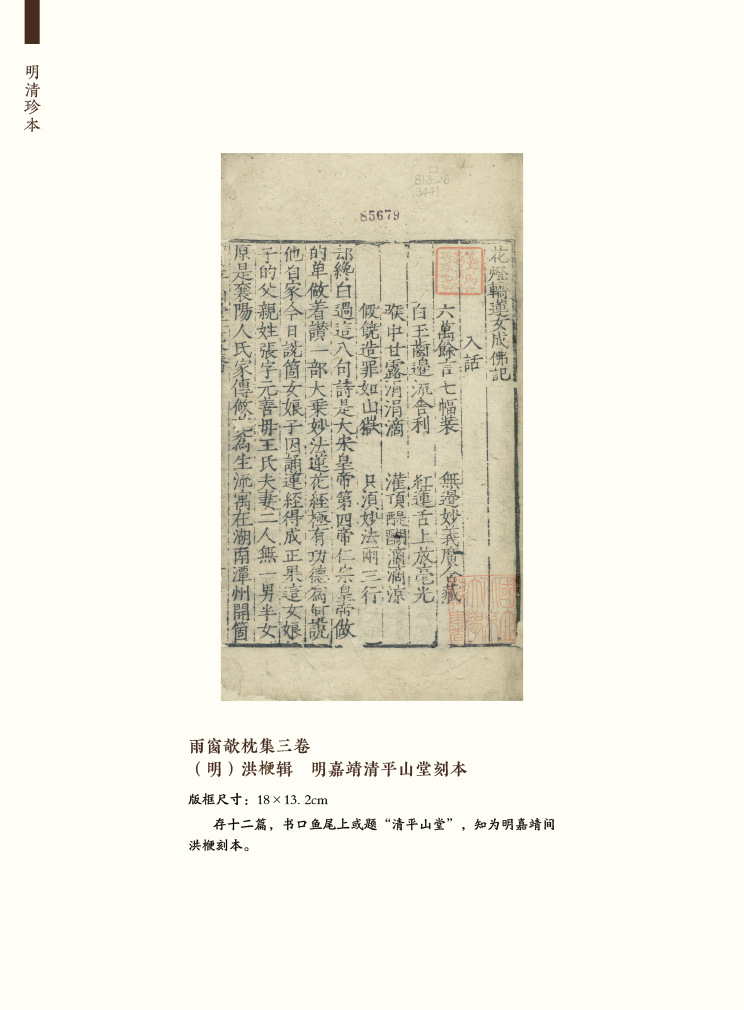 明清珍本
813.26
3441
85679
花燈轎蓮女成佛記
入話
六萬餘言七幅裝 無邊妙義廣含藏
白玉齒邊流舍利 紅蓮舌上放毫光
喉中甘露涓涓滴 灌頂醍醐滴滴涼
假饒造罪如山嶽 只消妙法兩三行
却纔白過這八句詩是大宋皇帝第四帝仁宗皇帝做
的单做着讚一部大乗妙法蓮花経極有功德為何說
他自家今日説箇女娘子因誦蓮经得成正果這女娘
子的父親姓張字元善毋王氏夫妻二人無一男半女
原是襄陽人氏家傳做花為生流寓在湖南潭州開箇
雨窗欹枕集三卷
（明）洪楩辑　明嘉靖清平山堂刻本
版框尺寸：18×13.2cm
存十二篇，书口鱼尾上或题“清平山堂”，知为明嘉靖间
洪楩刻本。